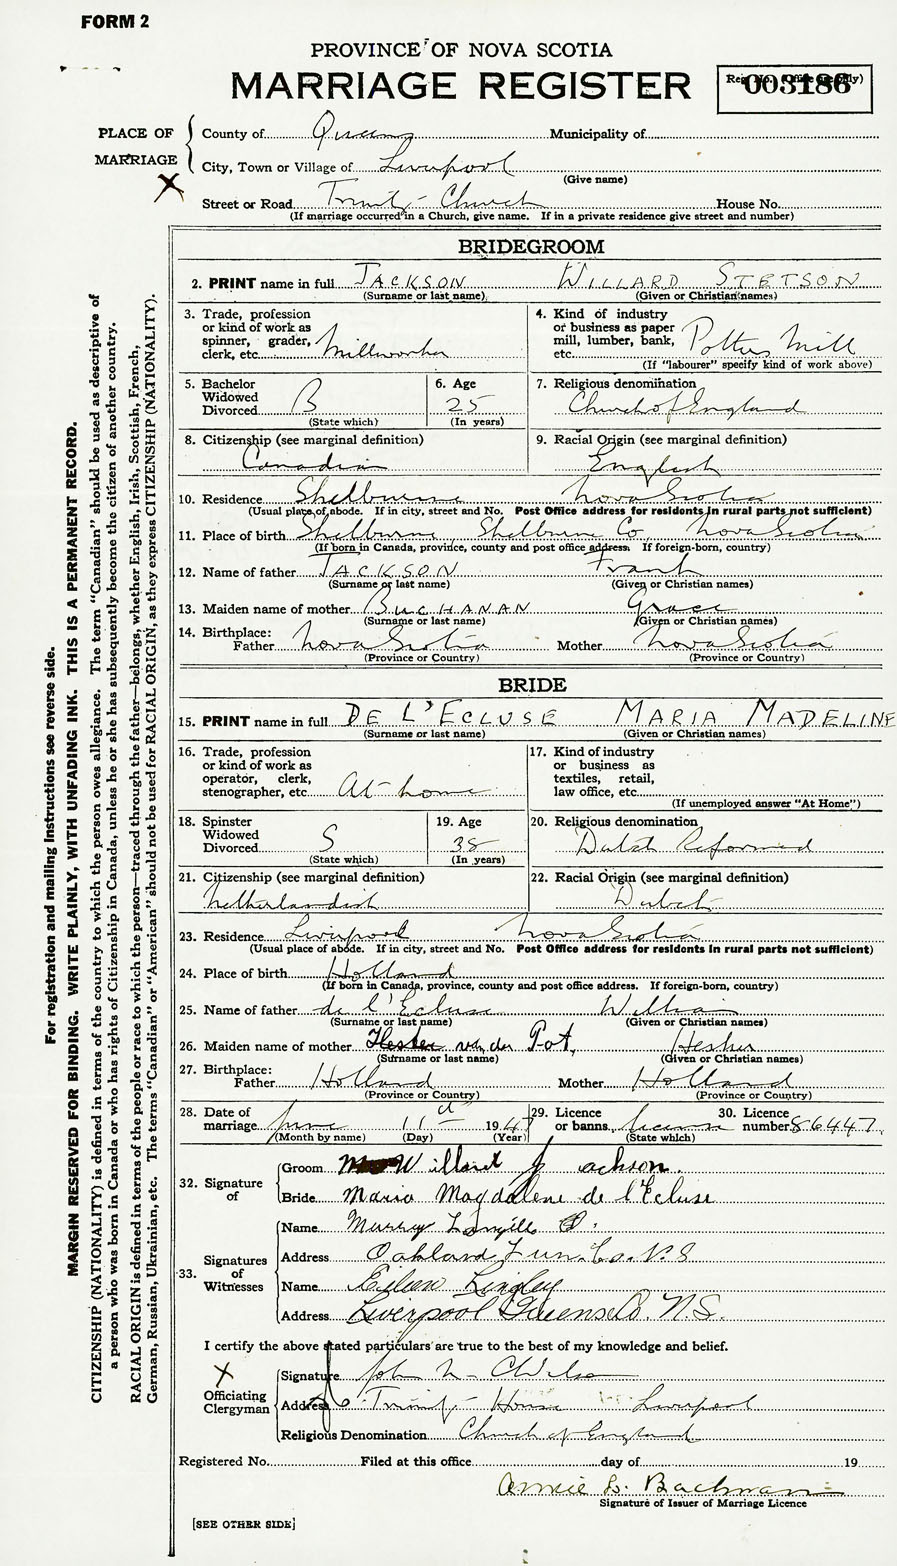 FORM 2
PROVINCE OF NOVA SCOTIA
MARRIAGE REGISTER
Reg. No. (Office use only)
003186
PLACE OF MARRIAGE
County of Queens Municipality of
City, Town or Village of Liverpool
(Give name)
Street or Road Trinity - Church House No.
(If marriage occurred in a Church, give name. If in a private residence give street and number)
BRIDEGROOM
2. PRINT name in full JACKSON WILLARD STETSON
(Surname or last name) (Given or Christian names)
3. Trade, profession or kind of work as spinner, grader, clerk, etc. Millworker
4. Kind of industry or business as paper mill, lumber, bank, etc. Mill
(If "labourer" specify kind of work above)
5. Bachelor Widowed Divorced B
(State which)
6. Age 25
(In years)
7. Religious denomination
Church of England
8. Citizenship (see marginal definition)
Canadian
9. Racial Origin (see marginal definition)
English
10. Residence Shelburne Nova Scotia
(Usual place of abode. If in city, street and No. Post Office address for residents in rural parts not sufficient)
11. Place of birth Shelburne Shelburne Co, Nova Scotia
(If born in Canada, province, county and post office address. If foreign-born, country)
12. Name of father JACKSON Frank
(Surname or last name) (Given or Christian names)
13. Maiden name of mother BUCHANAN Grace
(Surname or last name) (Given or Christian names)
14. Birthplace:
Father Nova Scotia Mother Nova Scotia
(Province or Country) (Province or Country)
BRIDE
15. PRINT name in full DE L'ECLUSE MARIA MADELINE
(Surname or last name) (Given or Christian names)
16. Trade, profession or kind of work as operator, clerk, stenographer, etc. At home
17. Kind of industry or business as textiles, retail, law office, etc.
(If unemployed answer "At Home")
18. Spinster Widowed Divorced S
(State which)
19. Age 38
(In years)
20. Religious denomination
Dutch Reformed
21. Citizenship (see marginal definition)
Netherlandish
22. Racial Origin (see marginal definition)
Dutch
23. Residence Liverpool Nova Scotia
(Usual place of abode. If in city, street and No. Post Office address for residents in rural parts not sufficient)
24. Place of birth Holland
(If born in Canada, province, county and post office address. If foreign-born, country)
25. Name of father de l'Ecluse William
(Surname or last name) (Given or Christian names)
26. Maiden name of mother Hester van der Pot, Hester
(Surname or last name) (Given or Christian names)
27. Birthplace:
Father Holland Mother Holland
(Province or Country) (Province or Country)
28. Date of marriage June 11th 1947
(Month by name) (Day) (Year)
29. Licence or banns licence
(State which)
30. Licence number 86447
32. Signature of
Groom Willard Jackson.
Bride Maria Magdalene de l'Ecluse
33. Signatures of Witnesses
Name Murray Langille
Address Oakland Lun. Co. N.S
Name Lingley
Address Liverpool Queens Co. N.S.
I certify the above stated particulars are true to the best of my knowledge and belief.
Officiating Clergyman
Signature John
Address Trinity - House Liverpool
Religious Denomination Church of England
Registered No. Filed at this office day of 19
Annie L. Bachman
Signature of Issuer of Marriage Licence
[SEE OTHER SIDE]
For registration and mailing instructions see reverse side.
MARGIN RESERVED FOR BINDING. WRITE PLAINLY, WITH UNFADING INK. THIS IS A PERMANENT RECORD.
CITIZENSHIP (NATIONALITY) is defined in terms of the country to which the person owes allegiance. The term "Canadian" should be used as descriptive of
a person who was born in Canada or who has rights of Citizenship in Canada, unless he or she has subsequently become the citizen of another country.
RACIAL ORIGIN is defined in terms of the people or race to which the person—traced through the father—belongs, whether English, Irish, Scottish, French,
German, Russian, Ukrainian, etc. The terms "Canadian" or "American" should not be used for RACIAL ORIGIN, as they express CITIZENSHIP (NATIONALITY).